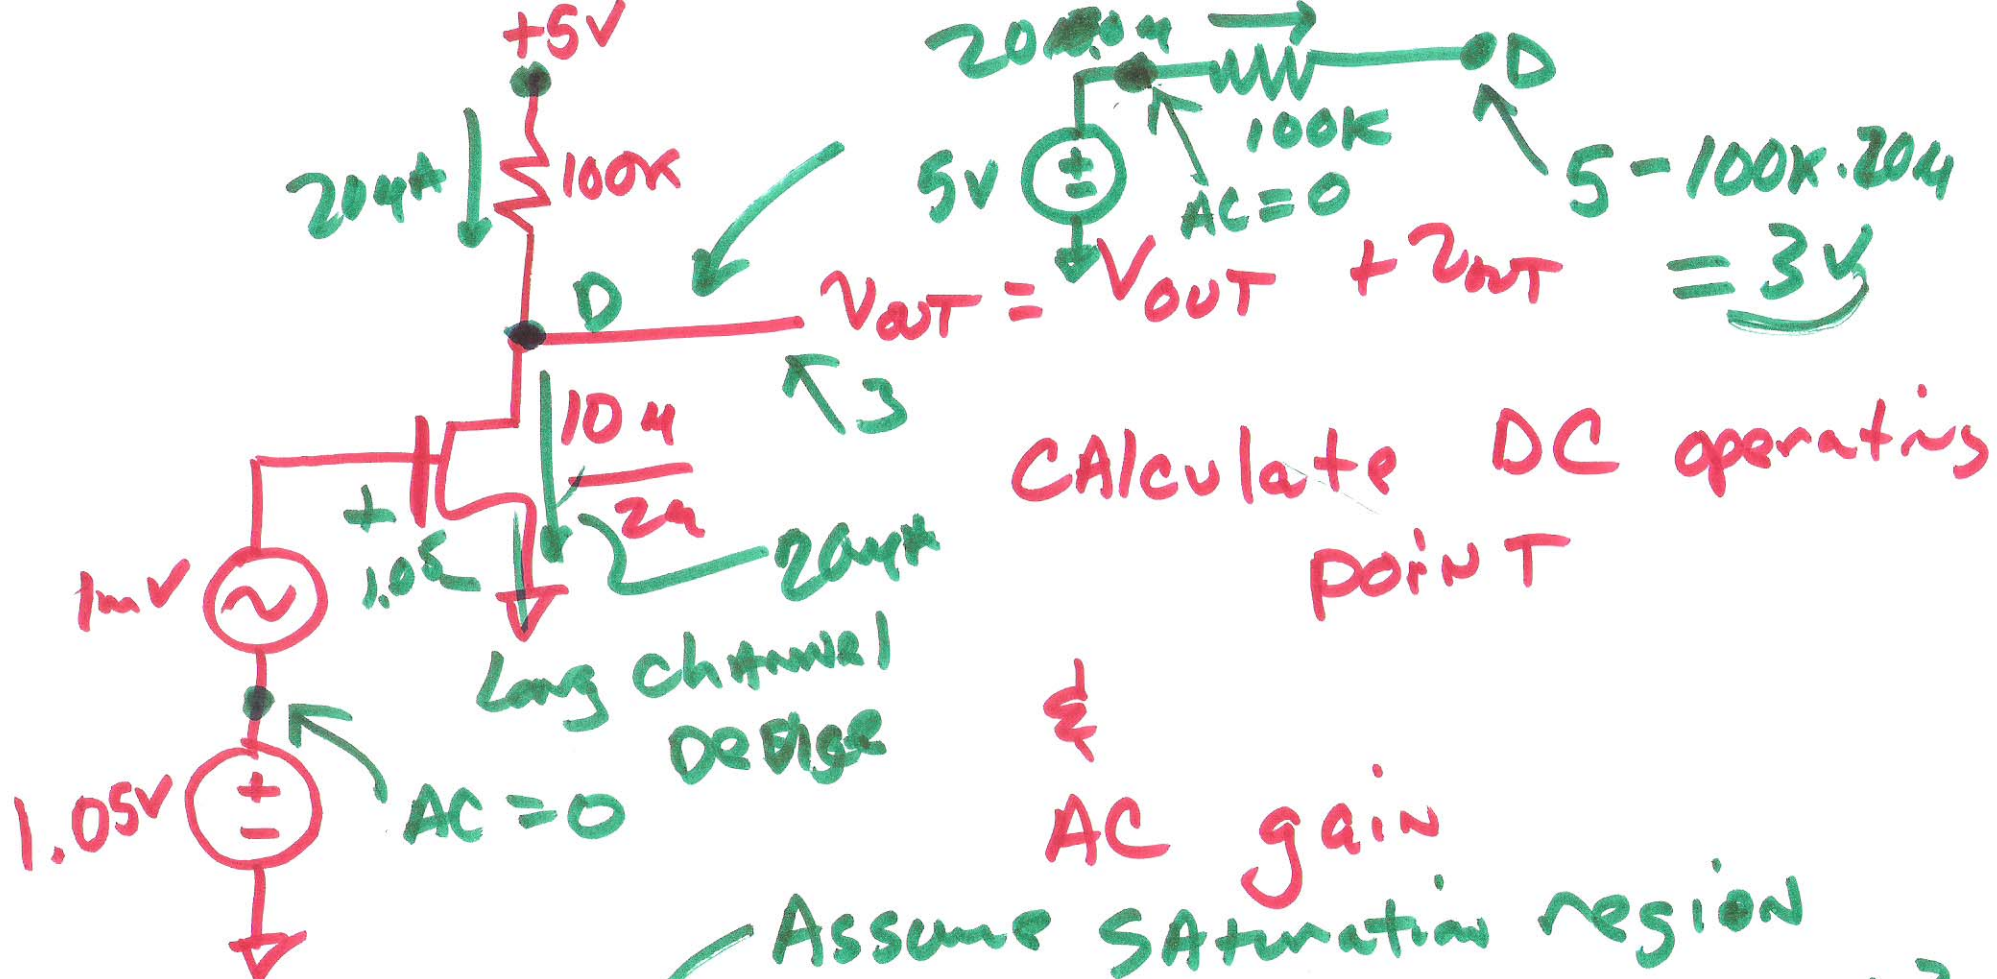 +5V
20µA
100K
D
VOUT = VOUT + vOUT
3
10µ
2µ
20µA
+
1.05
1mV
Long Channel
Device
1.05V
AC = 0
5V
+
-
AC = 0
100K
D
5 - 100K.20µ
= 3V
CAlculate DC operating
POiNT
&
AC gaiN
Assume SAturation regioN